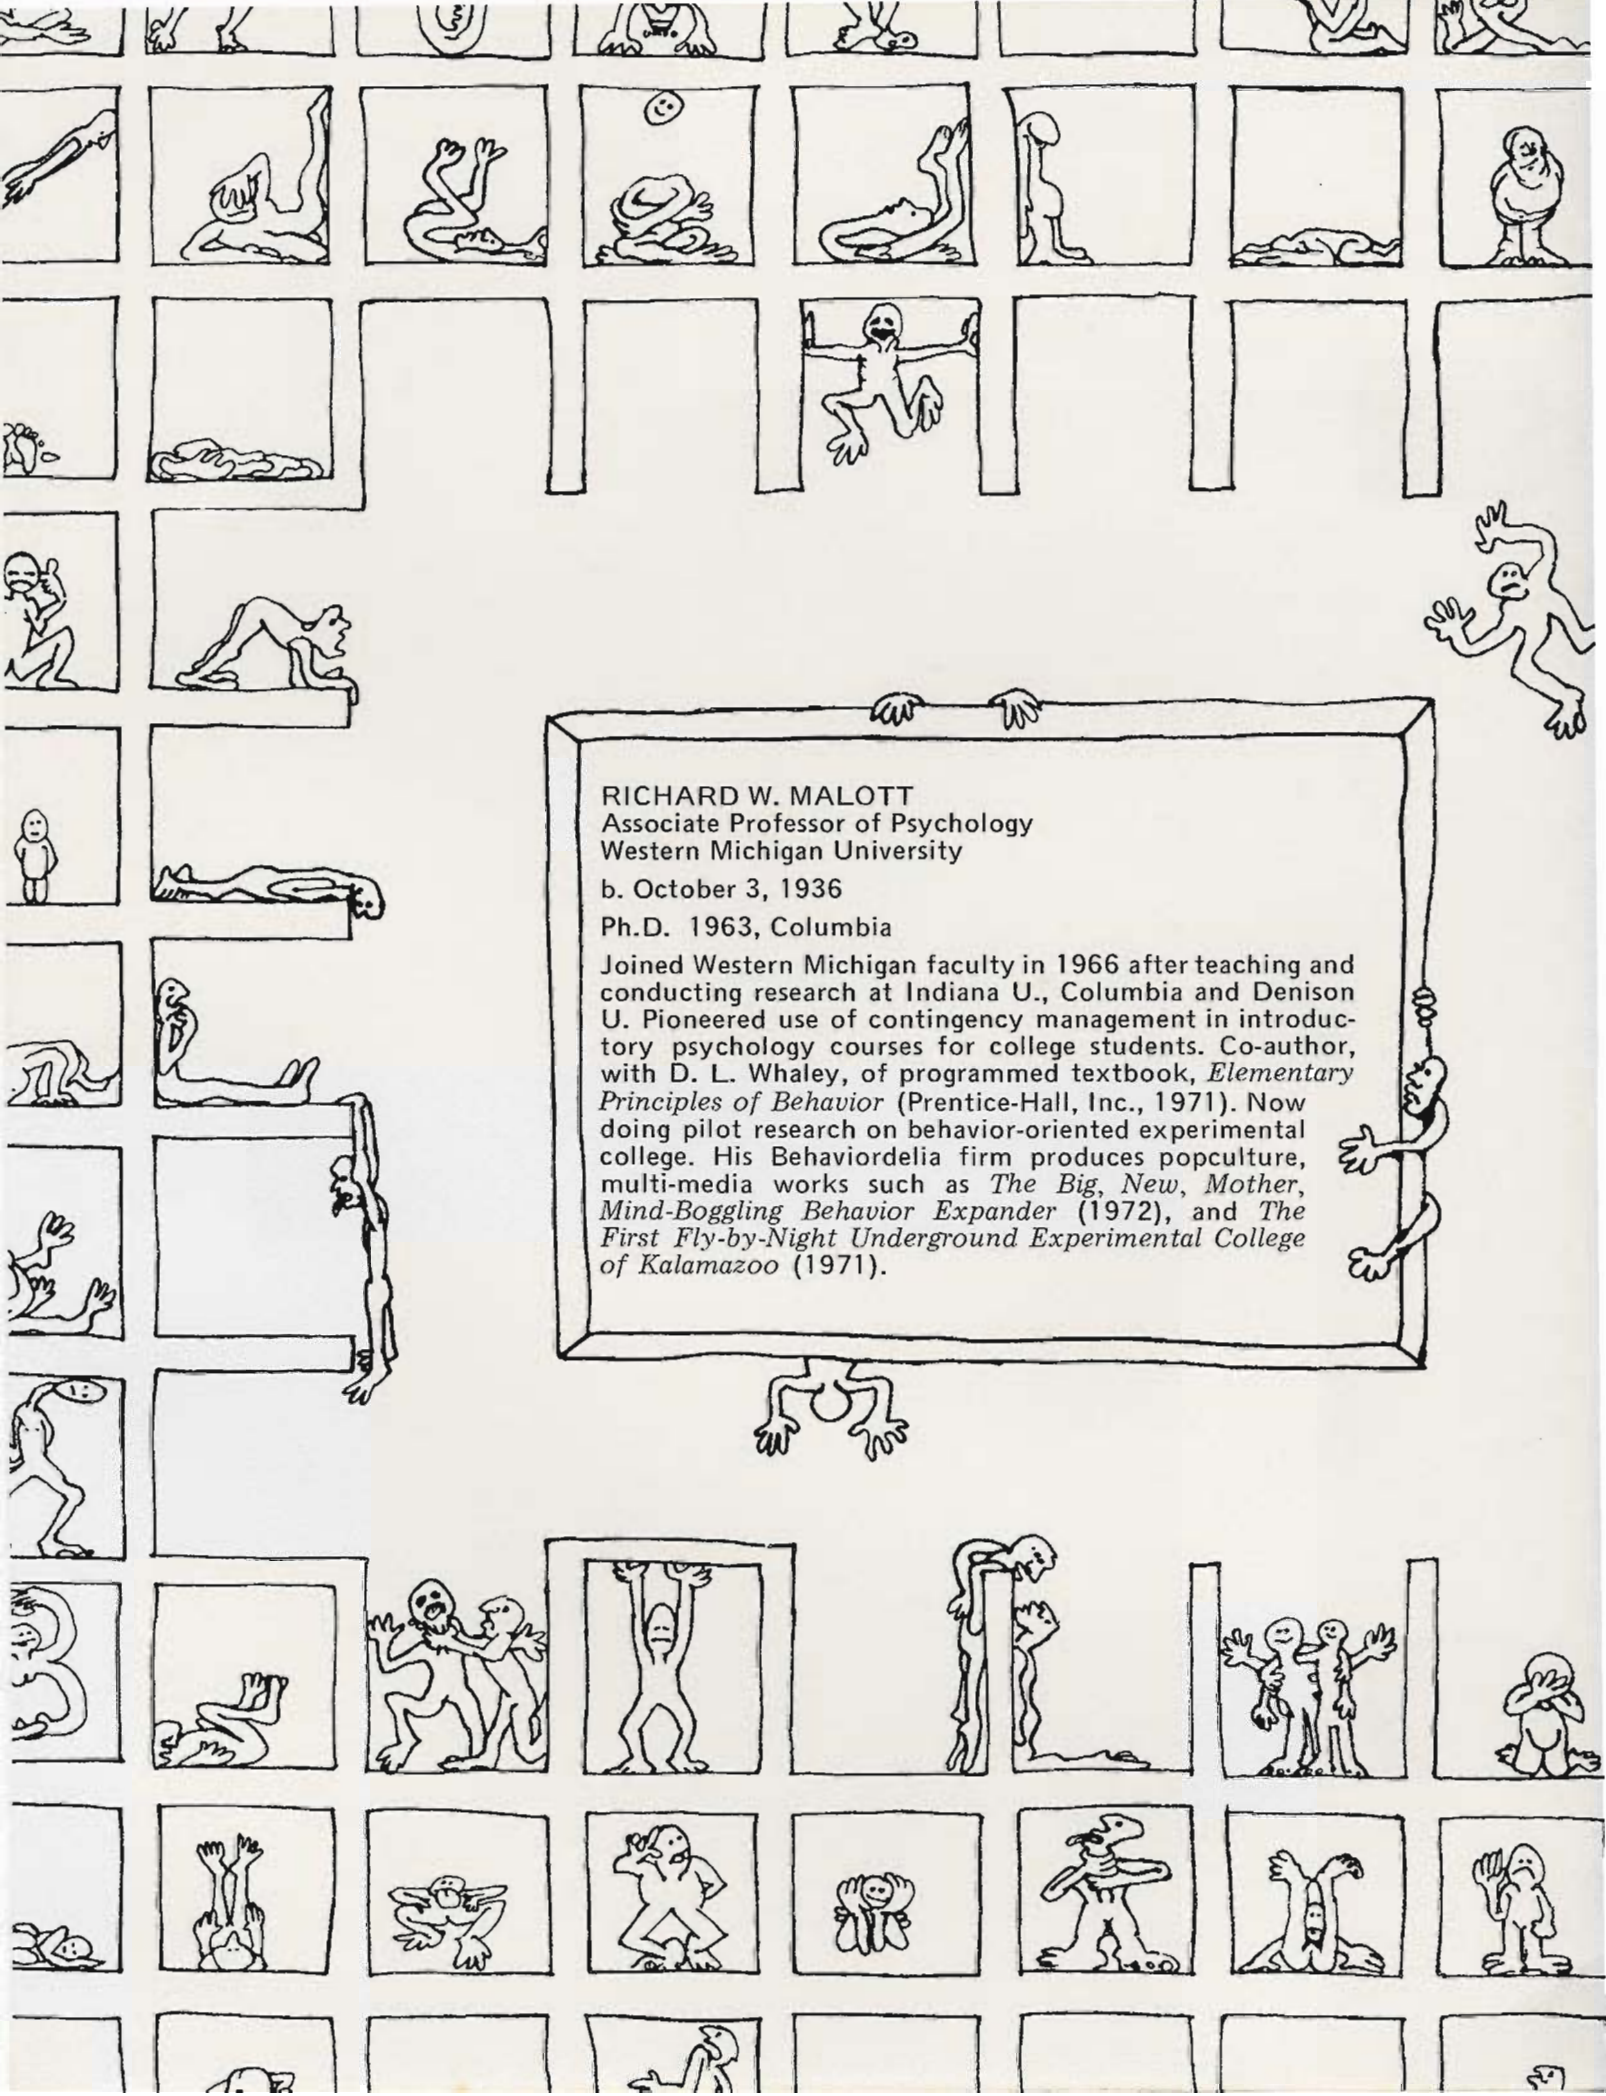 RICHARD W. MALOTT
Associate Professor of Psychology
Western Michigan University
b. October 3, 1936
Ph.D. 1963, Columbia
Joined Western Michigan faculty in 1966 after teaching and
conducting research at Indiana U., Columbia and Denison
U. Pioneered use of contingency management in introduc-
tory psychology courses for college students. Co-author,
with D. L. Whaley, of programmed textbook, Elementary
Principles of Behavior (Prentice-Hall, Inc., 1971). Now
doing pilot research on behavior-oriented experimental
college. His Behaviordelia firm produces popculture,
multi-media works such as The Big, New, Mother,
Mind-Boggling Behavior Expander (1972), and The
First Fly-by-Night Underground Experimental College
of Kalamazoo (1971).